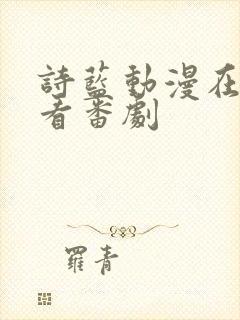 詩藍動漫在
看番劇
羅青